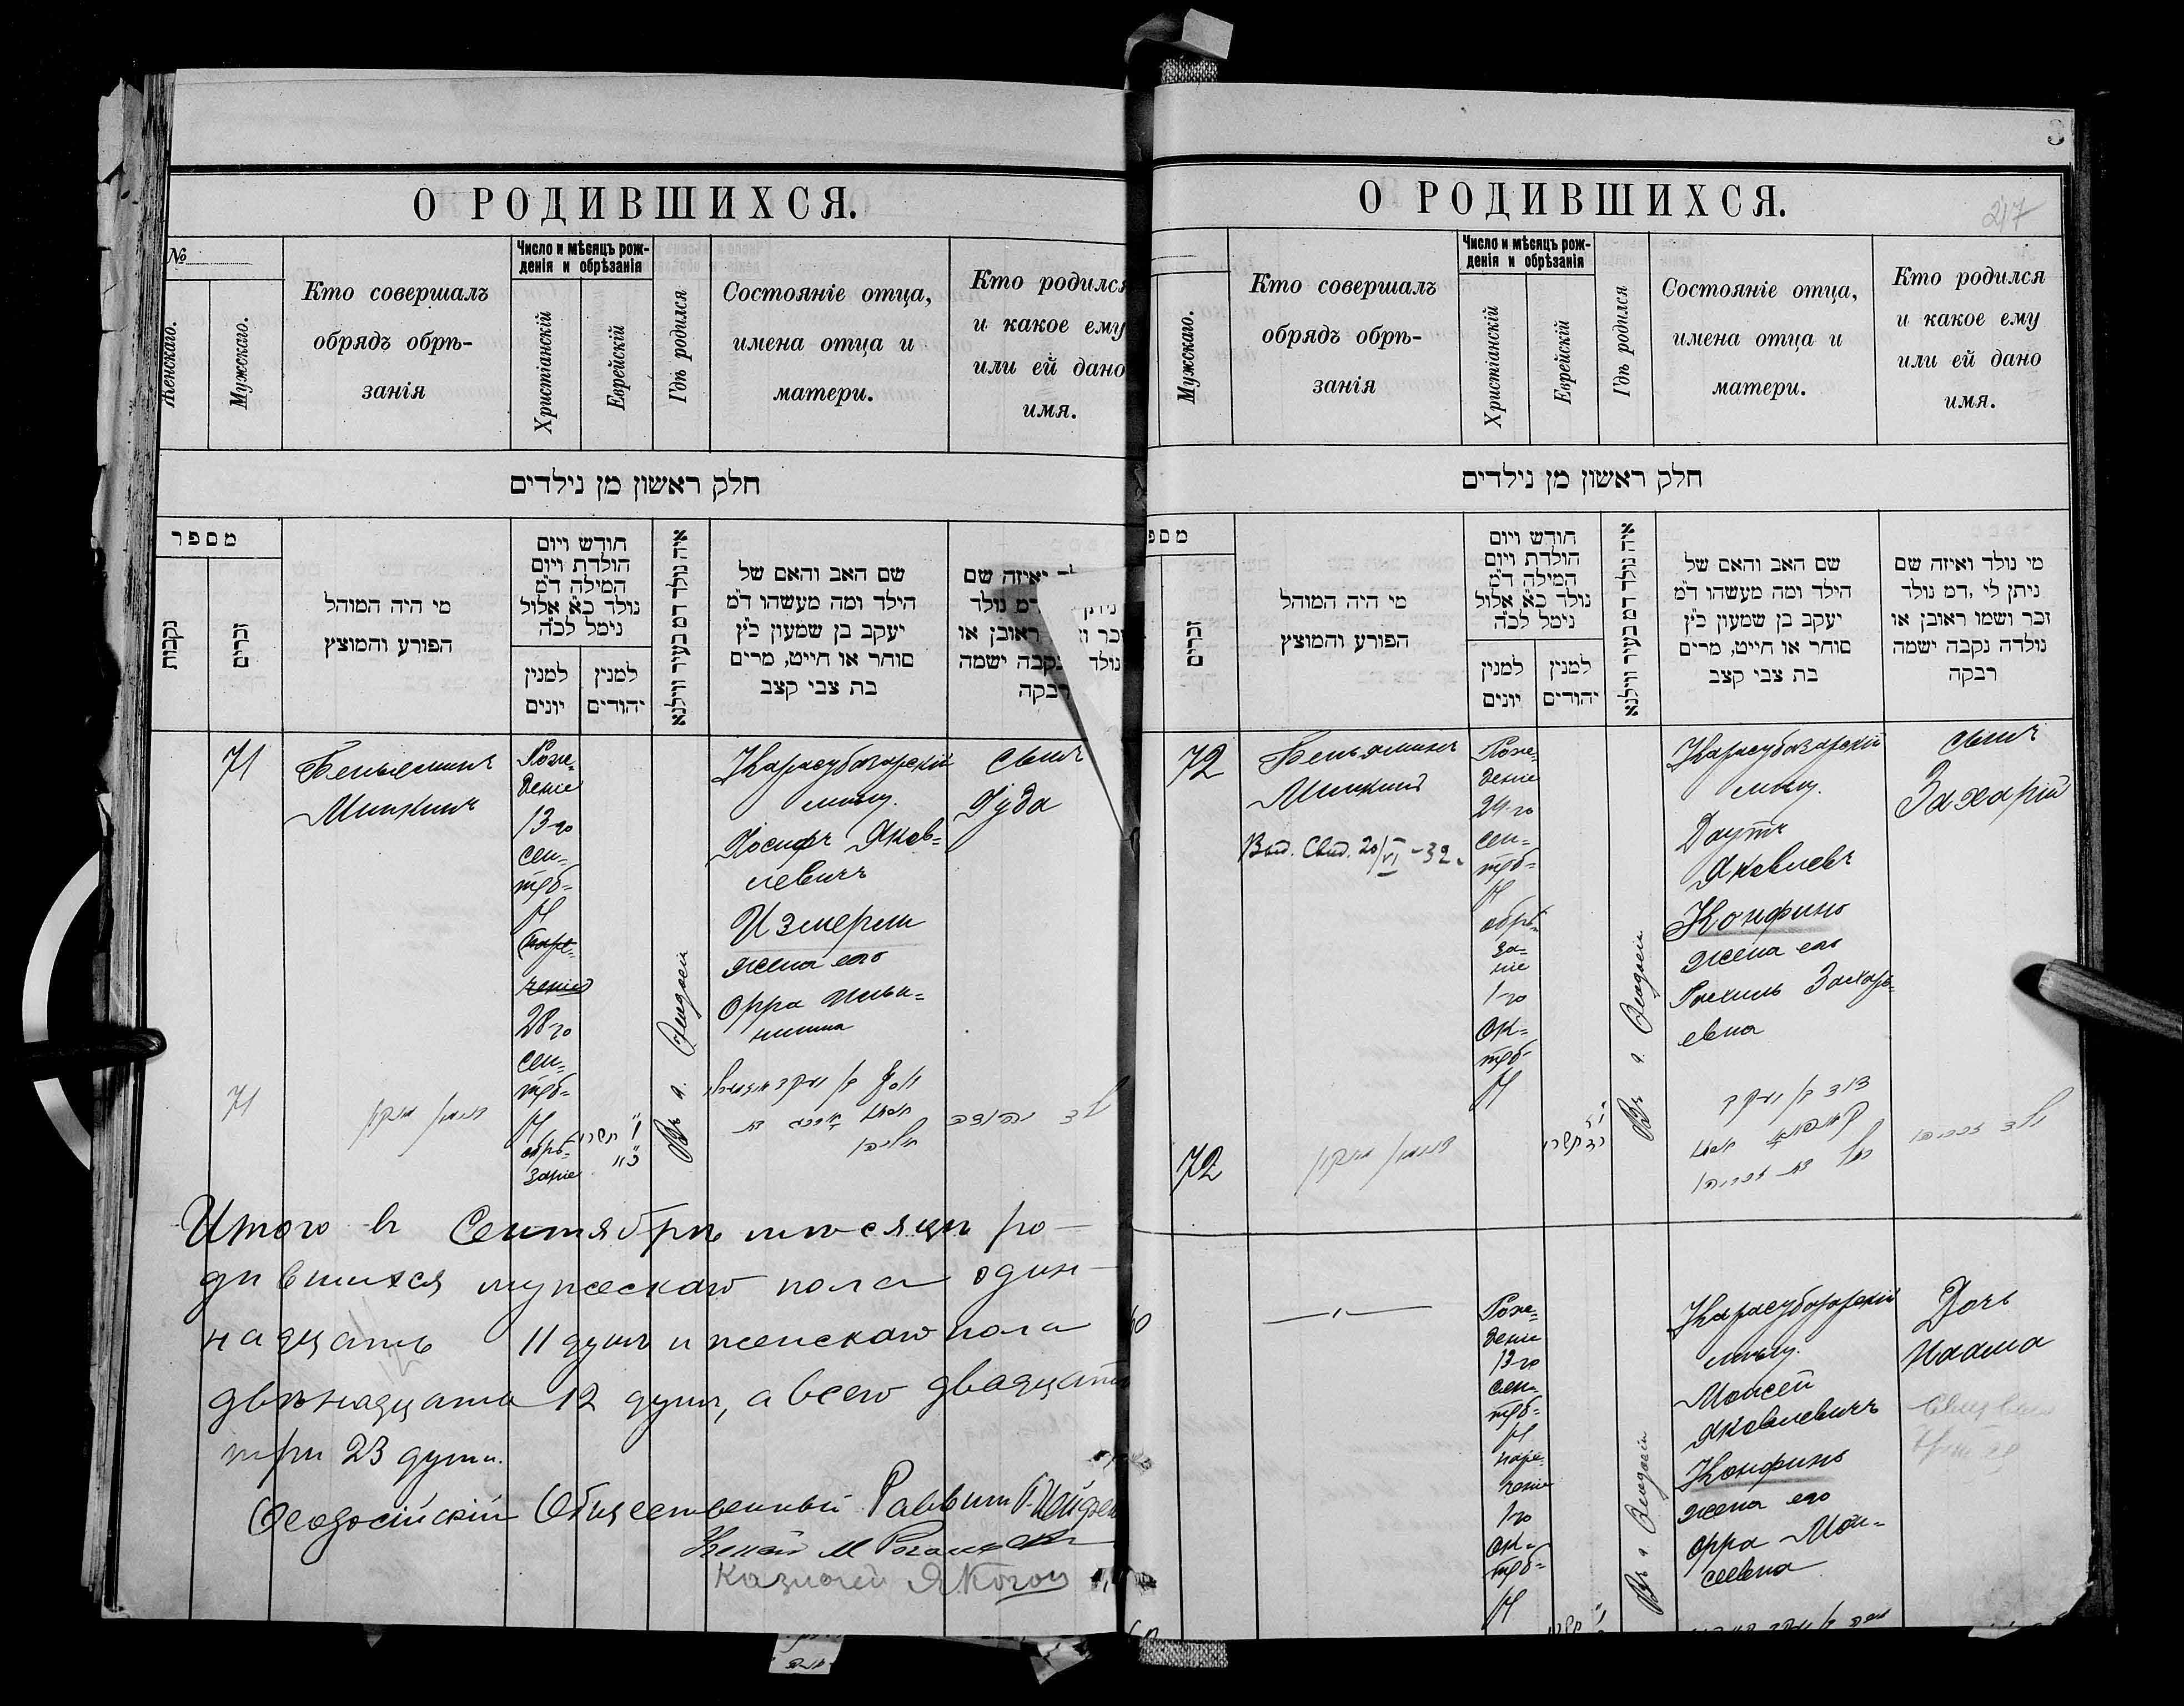 О РОДИВШИХСЯ.
№
Женскаго.
Мужскаго.
Кто совершалъ
обрядъ обрѣ-
занія
Число и мѣсяцъ рож-
денія и обрѣзанія
Христіанскій
Еврейскій
Гдѣ родился
Состояніе отца,
имена отца и
матери.
Кто родился
и какое ему
или ей дано
имя.
חלק ראשון מן נילדים
מספר
נקבות
זכרים
מי היה המוהל
הפורע והמוצץ
חודש ויום
הולדת ויום
המילה ד״מ
נולד כ״א אלול
נימל לכ״ה
למנין
יונים
למנין
יהודים
איה נולד דמ בעיר ווילנא
שם האב והאם של
הילד ומה מעשהו ד״מ
יעקב בן שמעון כ״ץ
סוחר או חייט, מרים
בת צבי קצב
ואיזה שם
נולד
ראובן או
נקבה ישמה
רבקה
71
Беньяминъ
Минкинъ
Рож-
деніе
13-го
сен-
тяб-
ря
наре-
ченіе
28-го
сен-
тяб-
ря
обрѣ-
заніе
Въ г. Ѳеодосіи
Карасубазарскій
мѣщ.
Іосифъ Яков-
левичъ
Измерли
жена его
Орра Ильи-
нишна
сынъ
Іуда
71
בנימן מינקין
תשרי
יוסף בן יעקב
ילד יהודה
Итого въ Сентябрѣ мѣсяцѣ ро-
дившихся мужескаго пола один-
надцать 11 душъ и женскаго пола
двѣнадцать 12 душъ, а всего двадцать
три 23 души.
Ѳеодосійскій Общественный Раввинъ
Казначей Я Коген
О РОДИВШИХСЯ.
3
217
Мужскаго.
Кто совершалъ
обрядъ обрѣ-
занія
Число и мѣсяцъ рож-
денія и обрѣзанія
Христіанскій
Еврейскій
Гдѣ родился
Состояніе отца,
имена отца и
матери.
Кто родился
и какое ему
или ей дано
имя.
חלק ראשון מן נילדים
מספ
זכרים
מי היה המוהל
הפורע והמוצץ
חודש ויום
הולדת ויום
המילה ד״מ
נולד כ״א אלול
נימל לכ״ה
למנין
יונים
למנין
יהודים
איה נולד דמ בעיר ווילנא
שם האב והאם של
הילד ומה מעשהו ד״מ
יעקב בן שמעון כ״ץ
סוחר או חייט, מרים
בת צבי קצב
מי נולד ואיזה שם
ניתן לי, דמ נולד
זכר ושמו ראובן או
נולדה נקבה ישמה
רבקה
72
Беньяминъ
Минкинъ
Выд. Свид. 20/VI-32 г.
Рож-
деніе
24-го
сен-
тяб-
ря
обрѣ-
за-
ніе
1-го
Ок-
тяб-
ря
Въ г. Ѳеодосіи
Карасубазарскій
мѣщ.
Даутъ
Яковлевъ
Конфино
жена его
Рахиль Захарь-
евна
сынъ
Захарій
72
בנימן מינקין
תשרי
דוד בן יעקב
רחל בת זכריהו
ילד זכריהו
60
—"—
Рож-
деніе
13-го
сен-
тяб-
ря
наре-
ченіе
1-го
Ок-
тяб-
ря
Въ г. Ѳеодосіи
Карасубазарскій
мѣщ.
Моисей
Яковлевичъ
Конфино
жена его
Орра Мои-
сеевна
Дочь
Наама